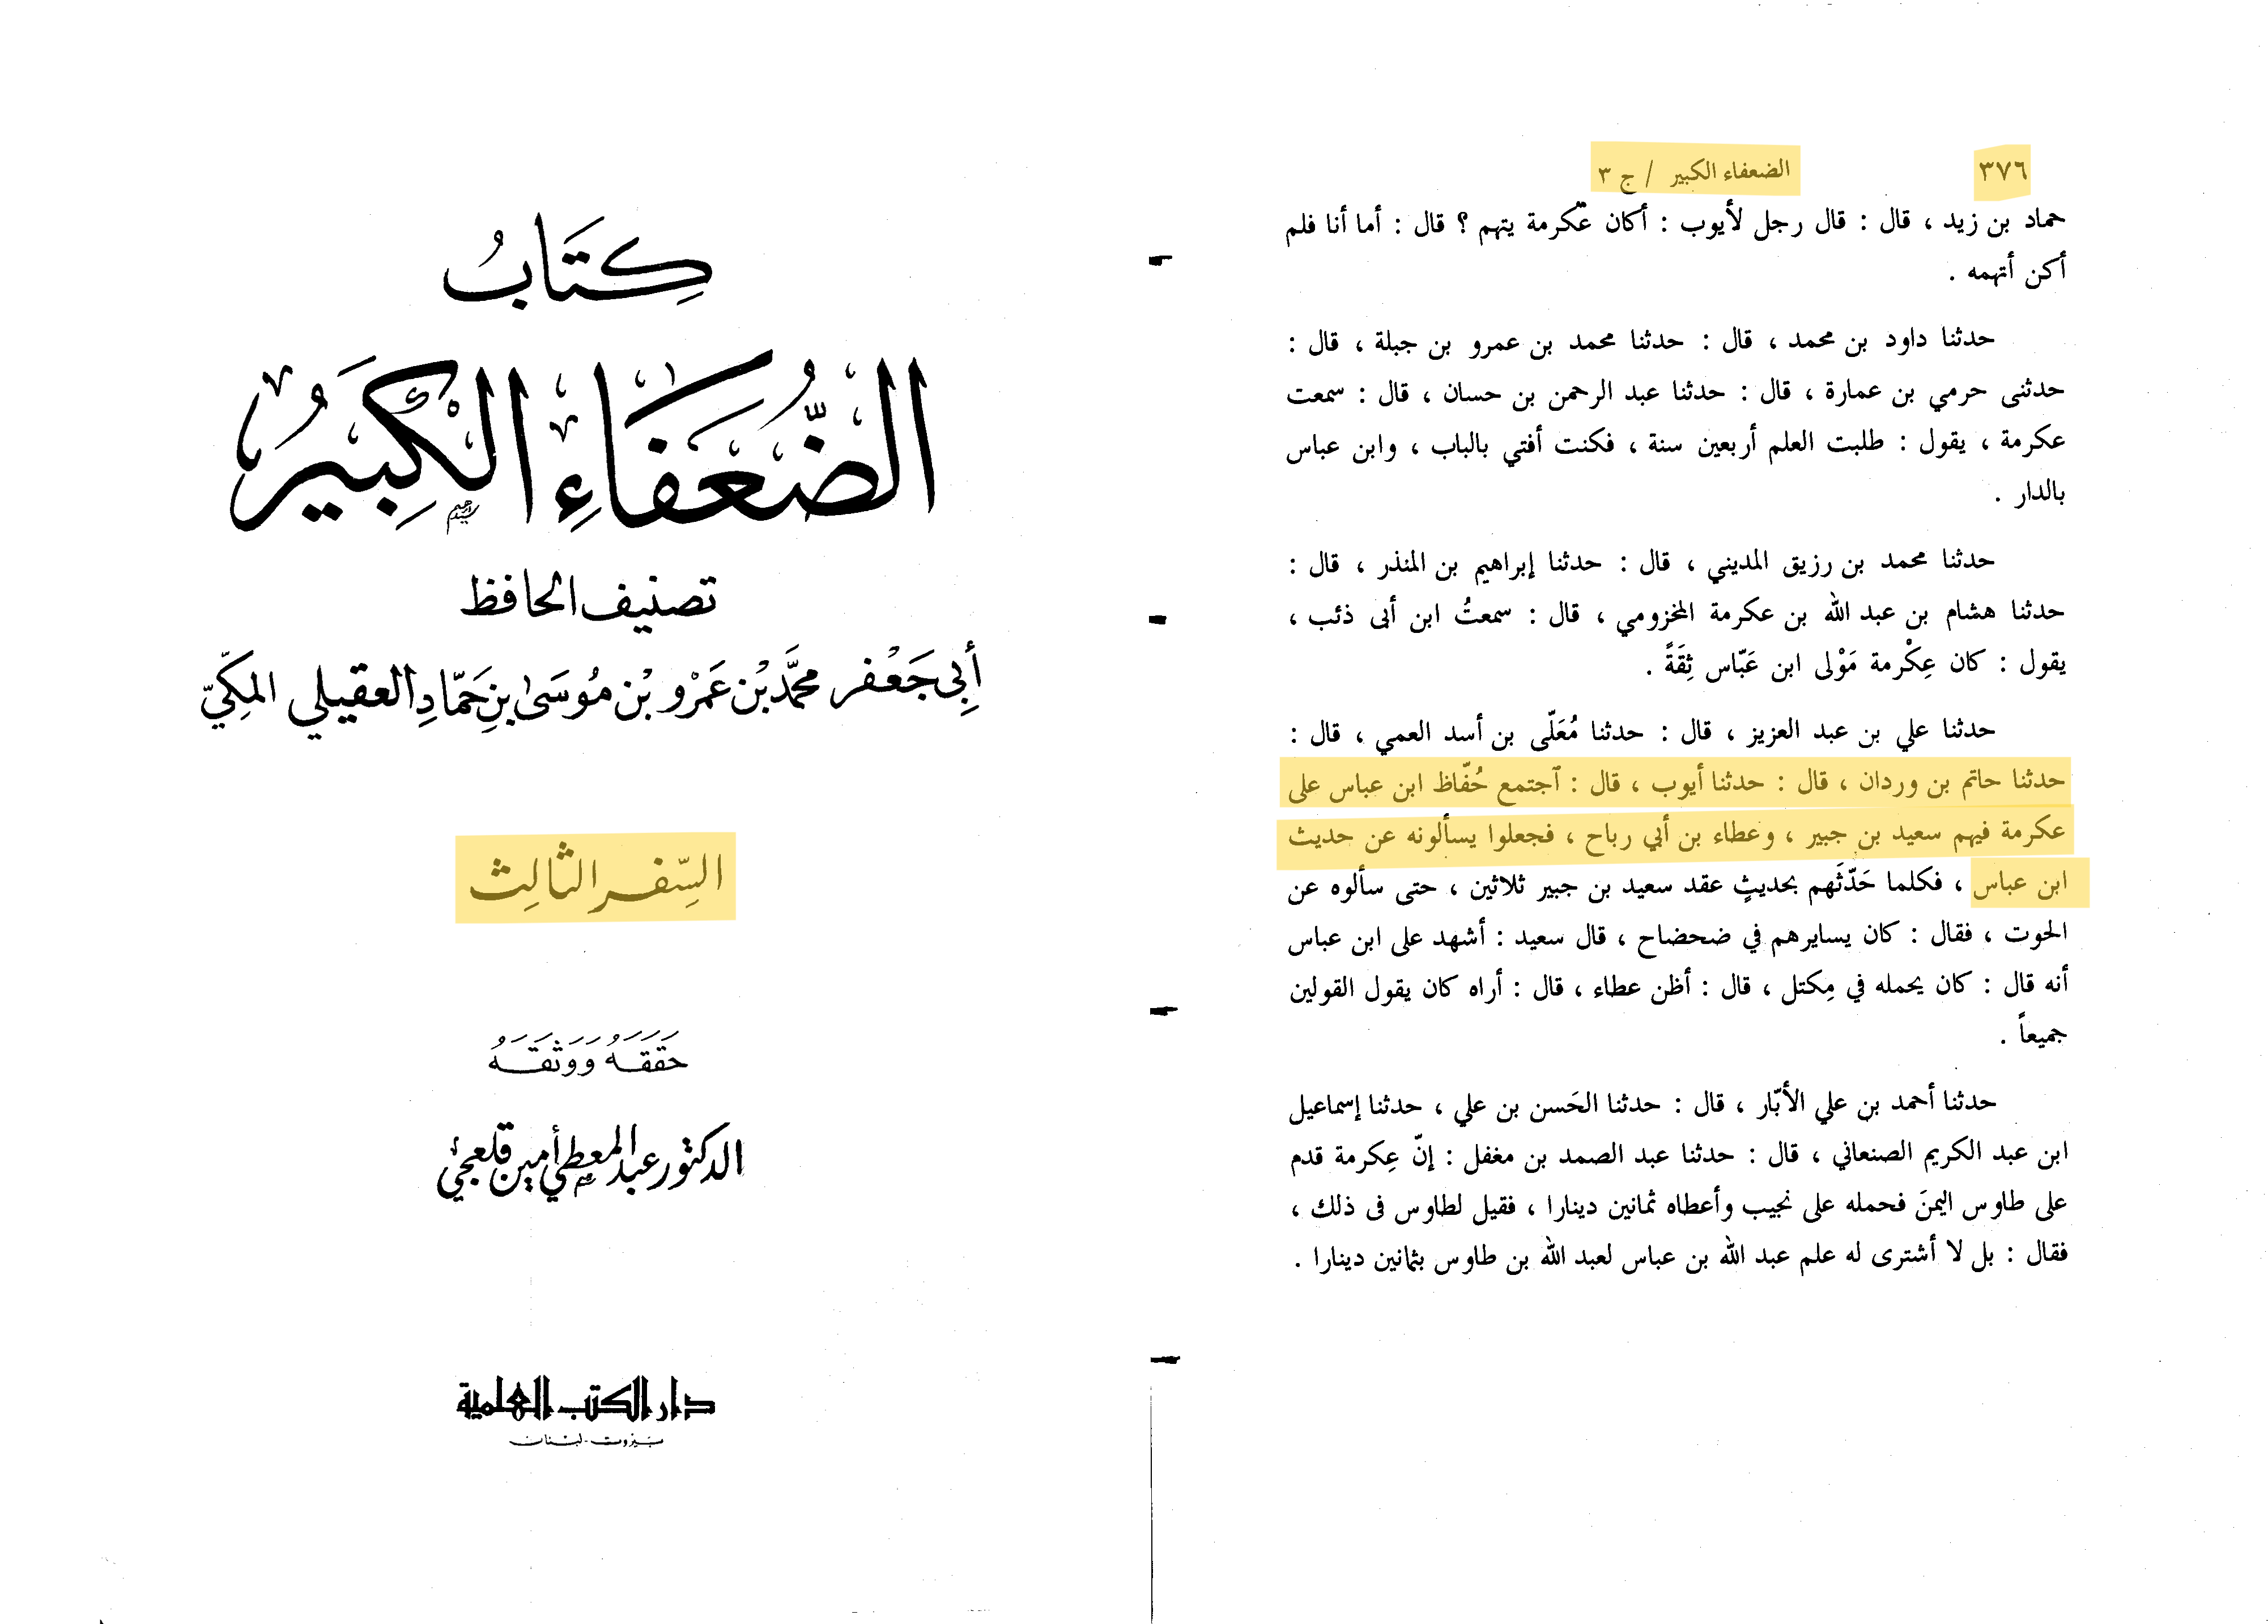 كِتَابُ
الضُّعَفَاءِ الكَبِيرُ
تصنيف الحافظ
أَبِي جَعْفَر محمَّد بْن عَمْرو بْن مُوسَىٰ بنِ حَمّادِ العقيلي المكِيّ
السِّفر الثالِث
حَقَقَهُ وَوَثَقَهُ
الدكتور عبد المعطي أمين قلعجي
دار الكتب العلمية
بيروت - لبنان
٣٧٦ الضعفاء الكبير / ج ٣
حماد بن زيد ، قال : قال رجل لأيوب : أكان عكرمة يتهم ؟ قال : أما أنا فلم
أكن أتهمه .
حدثنا داود بن محمد ، قال : حدثنا محمد بن عمرو بن جبلة ، قال :
حدثنى حرمي بن عمارة ، قال : حدثنا عبد الرحمن بن حسان ، قال : سمعت
عكرمة ، يقول : طلبت العلم أربعين سنة ، فكنت أفتي بالباب ، وابن عباس
بالدار .
حدثنا محمد بن رزيق المديني ، قال : حدثنا إبراهيم بن المنذر ، قال :
حدثنا هشام بن عبد الله بن عكرمة المخزومي ، قال : سمعتُ ابن أبى ذئب ،
يقول : كان عِكْرمة مَوْلى ابن عَبّاس ثِقَةً .
حدثنا علي بن عبد العزيز ، قال : حدثنا مُعَلّى بن أسد العمي ، قال :
حدثنا حاتم بن وردان ، قال : حدثنا أيوب ، قال : ٱجتمع حُفّاظ ابن عباس على
عكرمة فيهم سعيد بن جبير ، وعطاء بن أبي رباح ، فجعلوا يسألونه عن حديث
ابن عباس ، فكلما حَدّثَهم بحديثٍ عقد سعيد بن جبير ثلاثين ، حتى سألوه عن
الحوت ، فقال : كان يسايرهم في ضحضاح ، قال سعيد : أشهد على ابن عباس
أنه قال : كان يحمله في مِكتل ، قال : أظن عطاء ، قال : أراه كان يقول القولين
جميعاً .
حدثنا أحمد بن علي الأبّار ، قال : حدثنا الحَسن بن علي ، حدثنا إسماعيل
ابن عبد الكريم الصنعاني ، قال : حدثنا عبد الصمد بن مغفل : إنّ عِكرمة قدم
على طاوس اليمنَ فحمله على نجيب وأعطاه ثمانين دينارا ، فقيل لطاوس فى ذلك ،
فقال : بل لا أشترى له علم عبد الله بن عباس لعبد الله بن طاوس بثمانين دينارا .